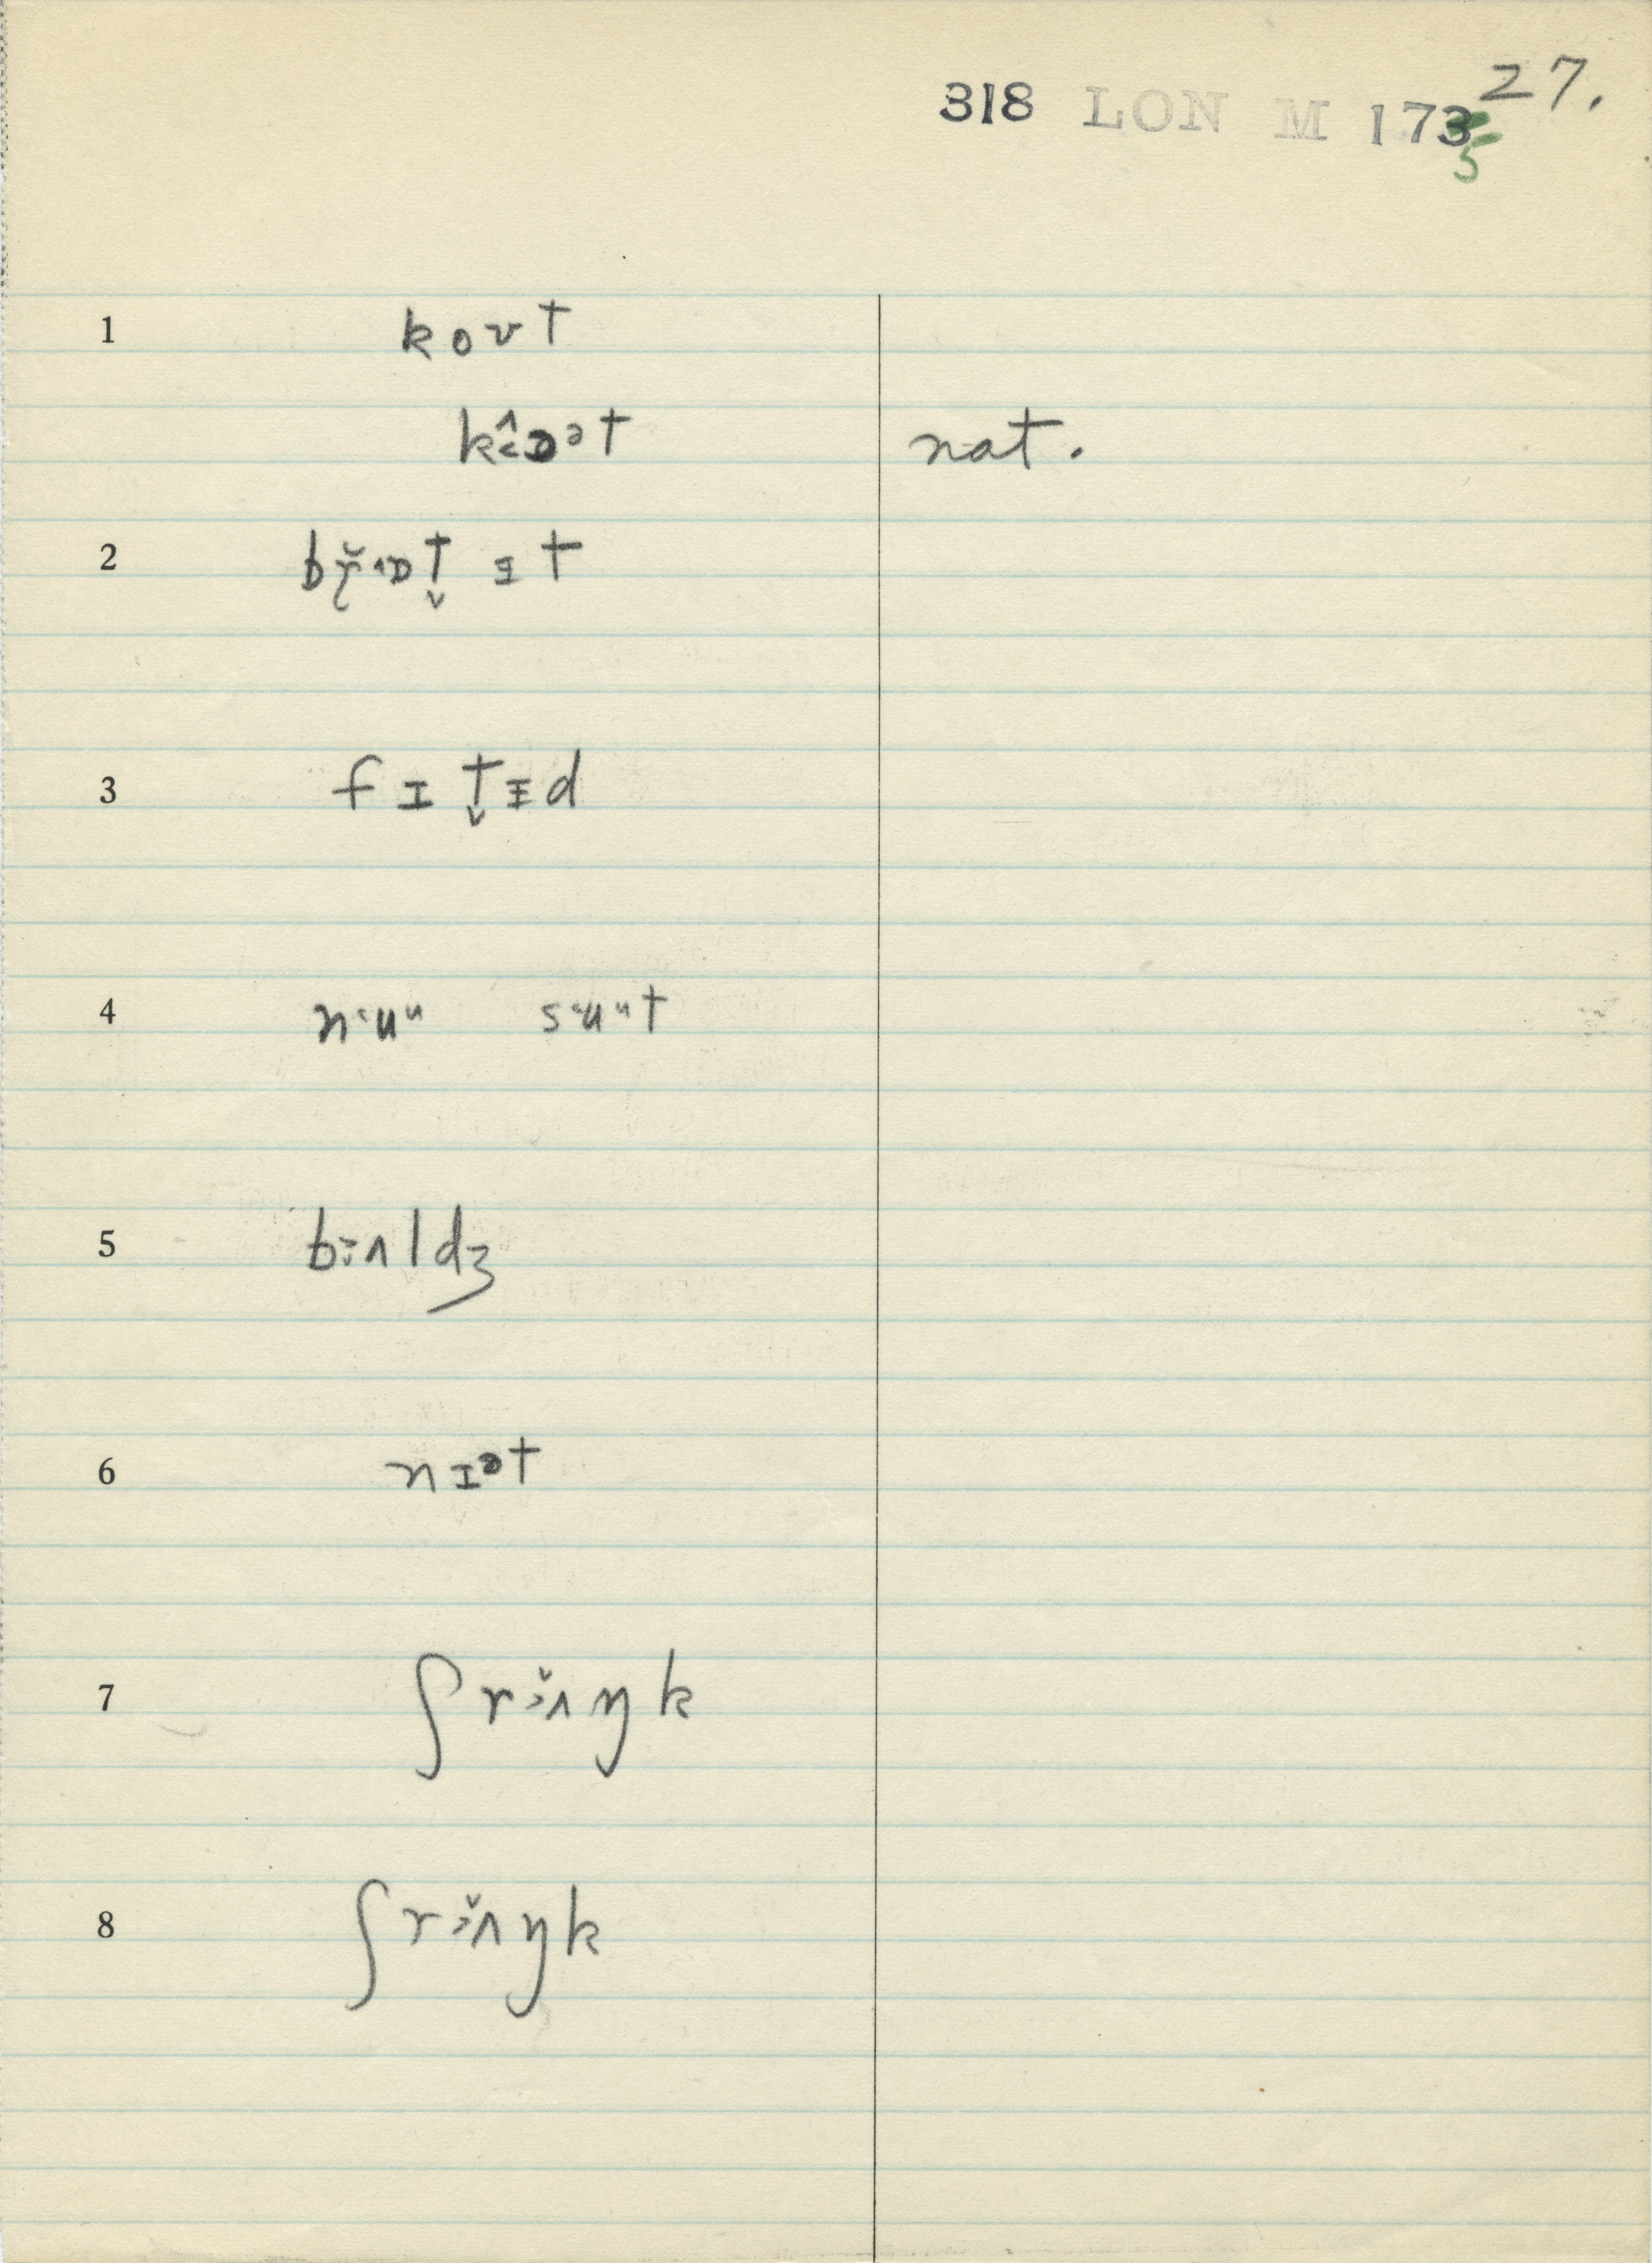 318 LON M 1735 27.
1 kovt
kɒᵊt nat.
2 br̆ɒt̬ ɪt
3 fɪt̬ɨd
4 nuᵘ suᵘt
5 bʌldʒ
6 nɪᵊt
7 ʃrʌ̆ŋk
8 ʃrʌ̆ŋk